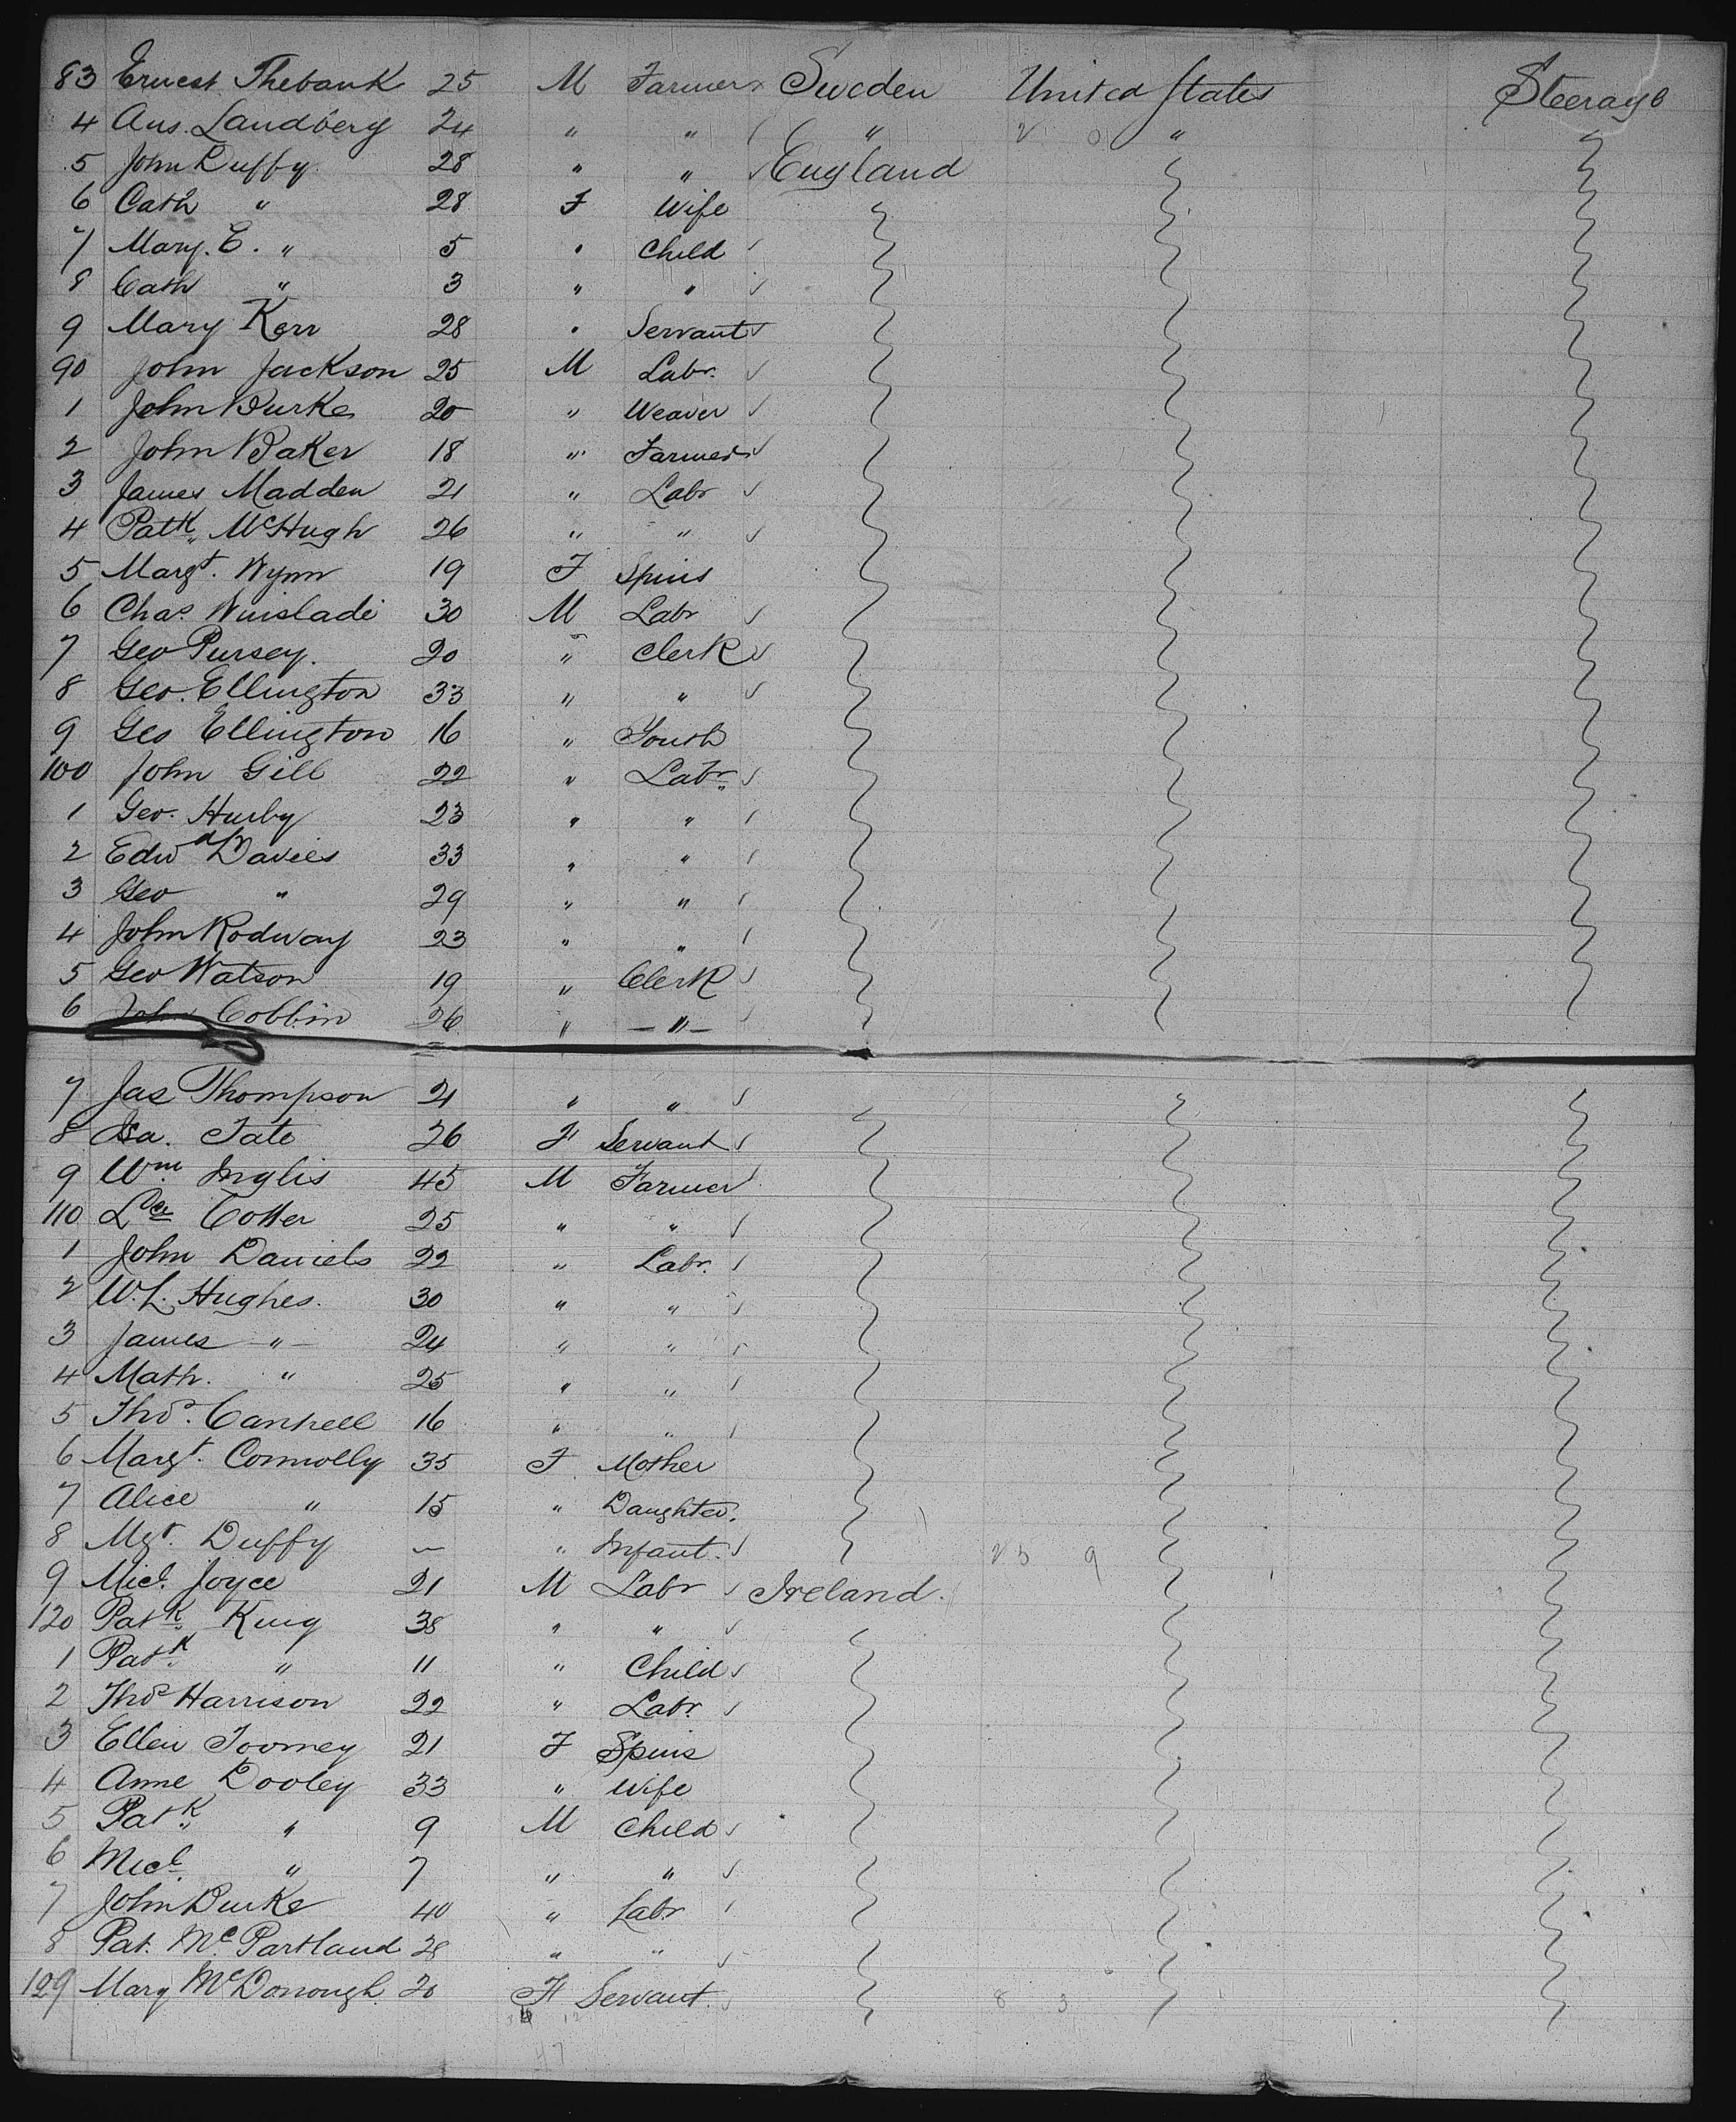 83 Ernest Thebank 25 M Farmer Sweden United States Steerage
4 Aus. Landberg 24 " " " "
5 John Duffy 28 " " England
6 Cath " 28 F Wife
7 Mary. E. " 5 " Child
8 Cath " 3 " "
9 Mary Kerr 28 " Servant
90 John Jackson 25 M Labr.
1 John Burke 20 " Weaver
2 John Baker 18 " Farmer
3 James Madden 21 " Labr
4 Patk. McHugh 26 " "
5 Margt. Wynn 19 F Spins
6 Chas. Winslade 30 M Labr
7 Geo Pursey. 20 " Clerk
8 Geo. Ellington 33 " "
9 Geo Ellington 16 " Youth
100 John Gill 22 " Labr.
1 Geo. Hurby 23 " "
2 Edwd Davies 33 " "
3 Geo " 29 " "
4 John Rodway 23 " "
5 Geo Watson 19 " Clerk
6 John Cobbin 26 " - " -
7 Jas Thompson 21 " "
8 Isa. Tate 26 F Servant
9 Wm. Inglis 45 M Farmer
110 Lce Cotter 25 " "
1 John Daniels 22 " Labr.
2 W. L. Hughes. 30 " "
3 James - " - 24 " "
4 Math. " 25 " "
5 Thos. Cantrell 16 " "
6 Margt. Connolly 35 F Mother
7 Alice " 15 " Daughter.
8 Mgt. Duffy - " Infant. 25 9
9 Micl. Joyce 21 M Labr Ireland.
120 Patk. King 38 " "
1 Patk. " 11 " Child
2 Thos Harrison 22 " Labr.
3 Ellen Toomey 21 F Spins
4 Anne Dooley 33 " Wife
5 Patk. " 9 M Child
6 Micl. " 7 " "
7 John Burke 40 " Labr
8 Pat. Mc. Partland 28 " "
129 Mary McDonough 20 F Servant. 8 3
47